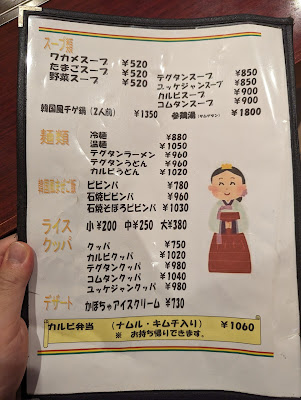 スープ類
ワカメスープ ¥520
たまごスープ ¥520
野菜スープ ¥520
テグタンスープ ¥850
ユッケジャンスープ ¥850
カルビスープ ¥1050
コムタンスープ ¥1050
韓国風チゲ鍋(2人前) ¥1350
参鶏湯(サムゲタン) ¥1800
麺類
冷麺 ¥880
温麺 ¥1050
テグタンラーメン ¥960
テグタンうどん ¥960
カルビうどん ¥1020
韓国風まぜご飯
ビビンバ ¥780
石焼ビビンバ ¥960
石焼そぼろビビンバ ¥1030
ライス 小¥200 中¥250 大¥380
クッパ
クッパ ¥750
カルビクッパ ¥1020
テグタンクッパ ¥980
コムタンクッパ ¥1040
ユッケジャンクッパ ¥980
デザート かぼちゃアイスクリーム ¥730
カルビ弁当 (ナムル・キムチ入り) ¥1060
※ お持ち帰りできます。